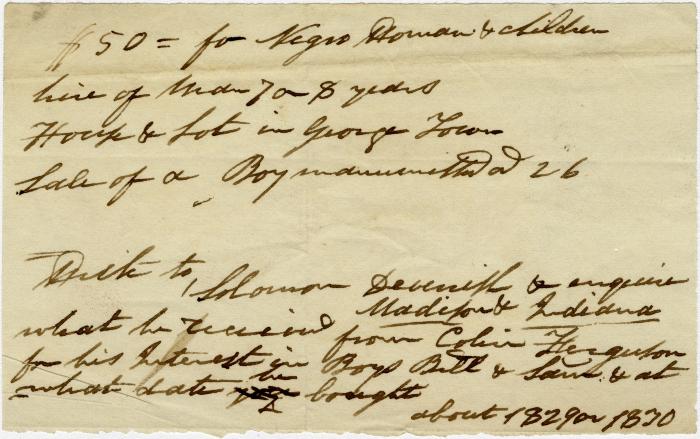 $50 = for Negro Woman & children
hire of Man 7 or 8 years
House & Lot in George Town
Sale of a Boy manumitted at 26
Write to Solomon Devenish & enquire
Madison & Indiana
what he received from Colin Ferguson
for his Interest in Boys Bill & Sam & at
what date he bought
about 1829 or 1830